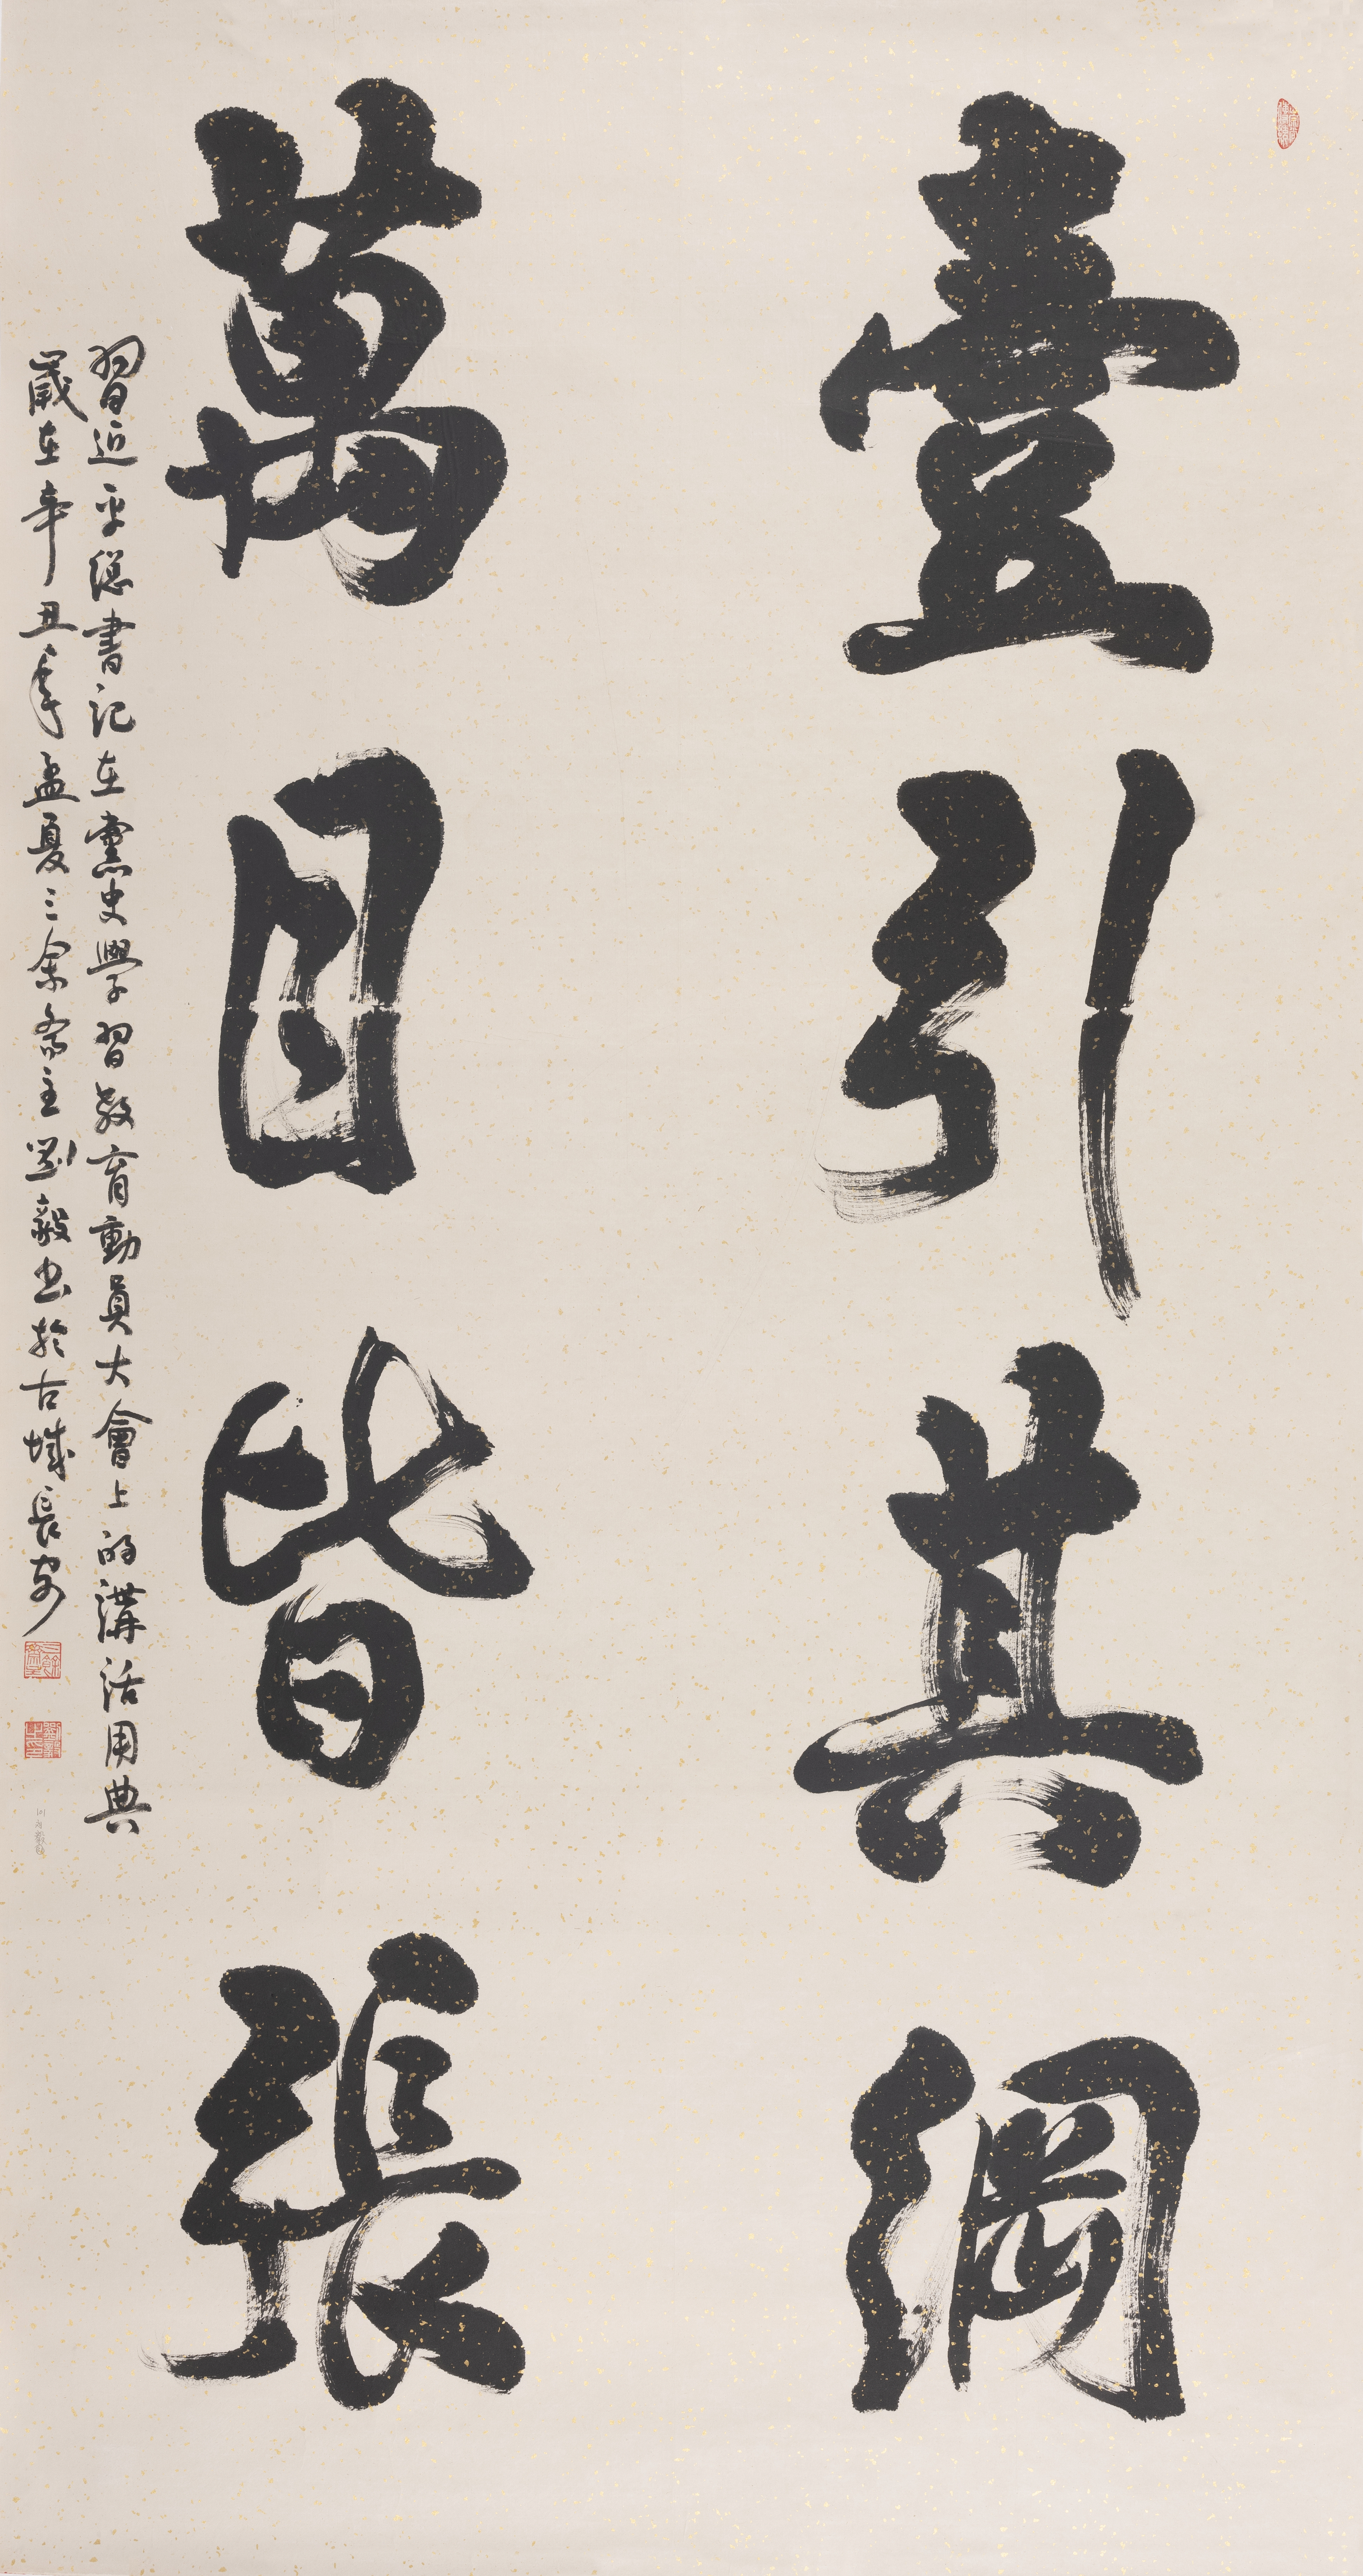 壹引其綱
萬目皆張
習近平總書記在黨史學習教育動員大會上的講話用典
歲在辛丑年孟夏三余齋主劉毅书於古城長安
劉毅